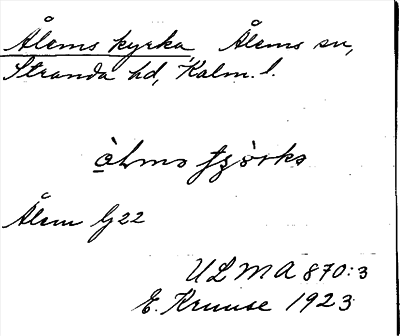 Ålems kyrka Ålems sn,
Stranda hd, Kalm. l.
àlms
Ålem G22
ULMA 870:3
E. Kruuse 1923